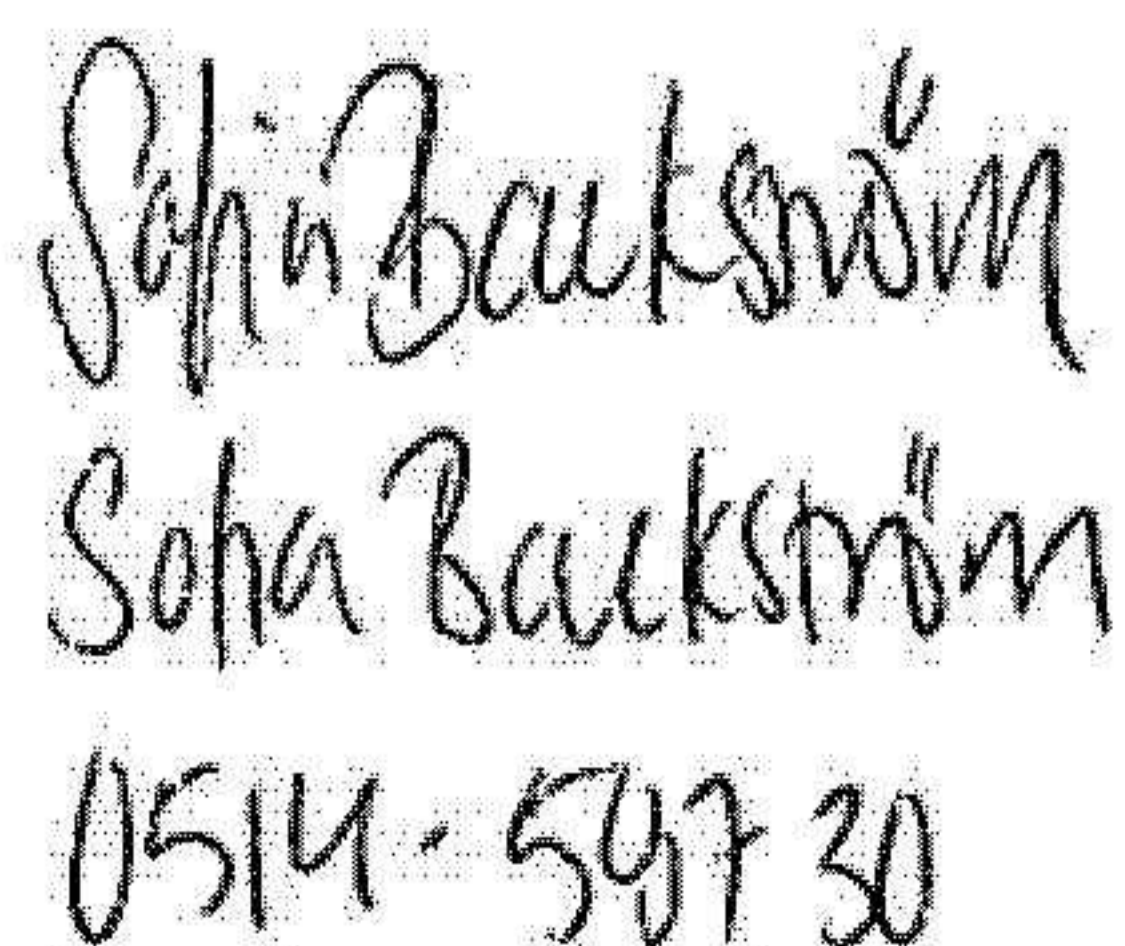 Sofia Backström
Sofia Backström
0514-597 30